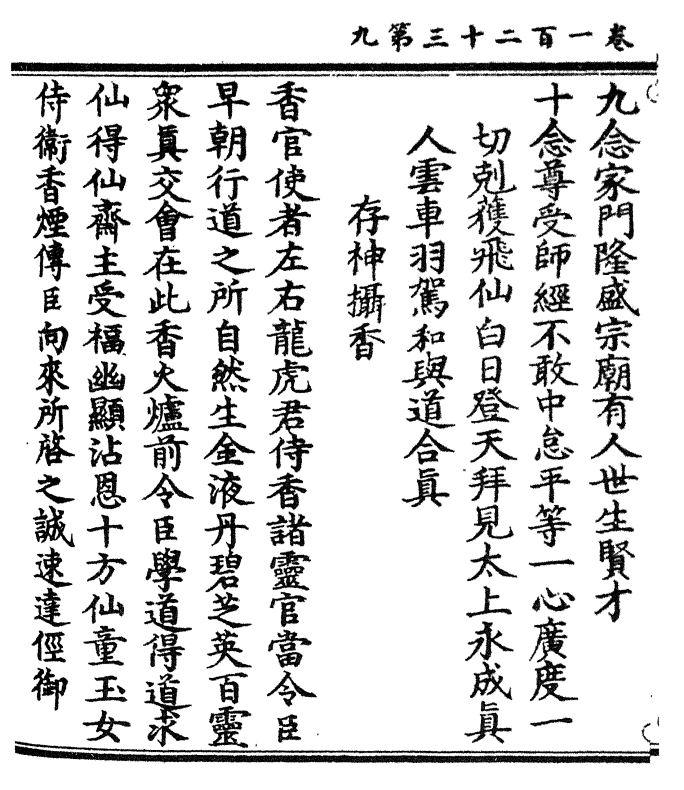 卷一百二十三第九
九念家門隆盛宗廟有人世生賢才
十念尊受師經不敢中怠平等一心廣度一
切剋獲飛仙白日登天拜見太上永成眞
人雲車羽駕和與道合眞
存神攝香
香官使者左右龍虎君侍香諸靈官當令臣
早朝行道之所自然生金液丹碧芝英百靈
衆眞交會在此香火爐前令臣學道得道求
仙得仙齋主受福幽顯沾恩十方仙童玉女
侍衞香煙傳臣向來所啓之誠速達徑御